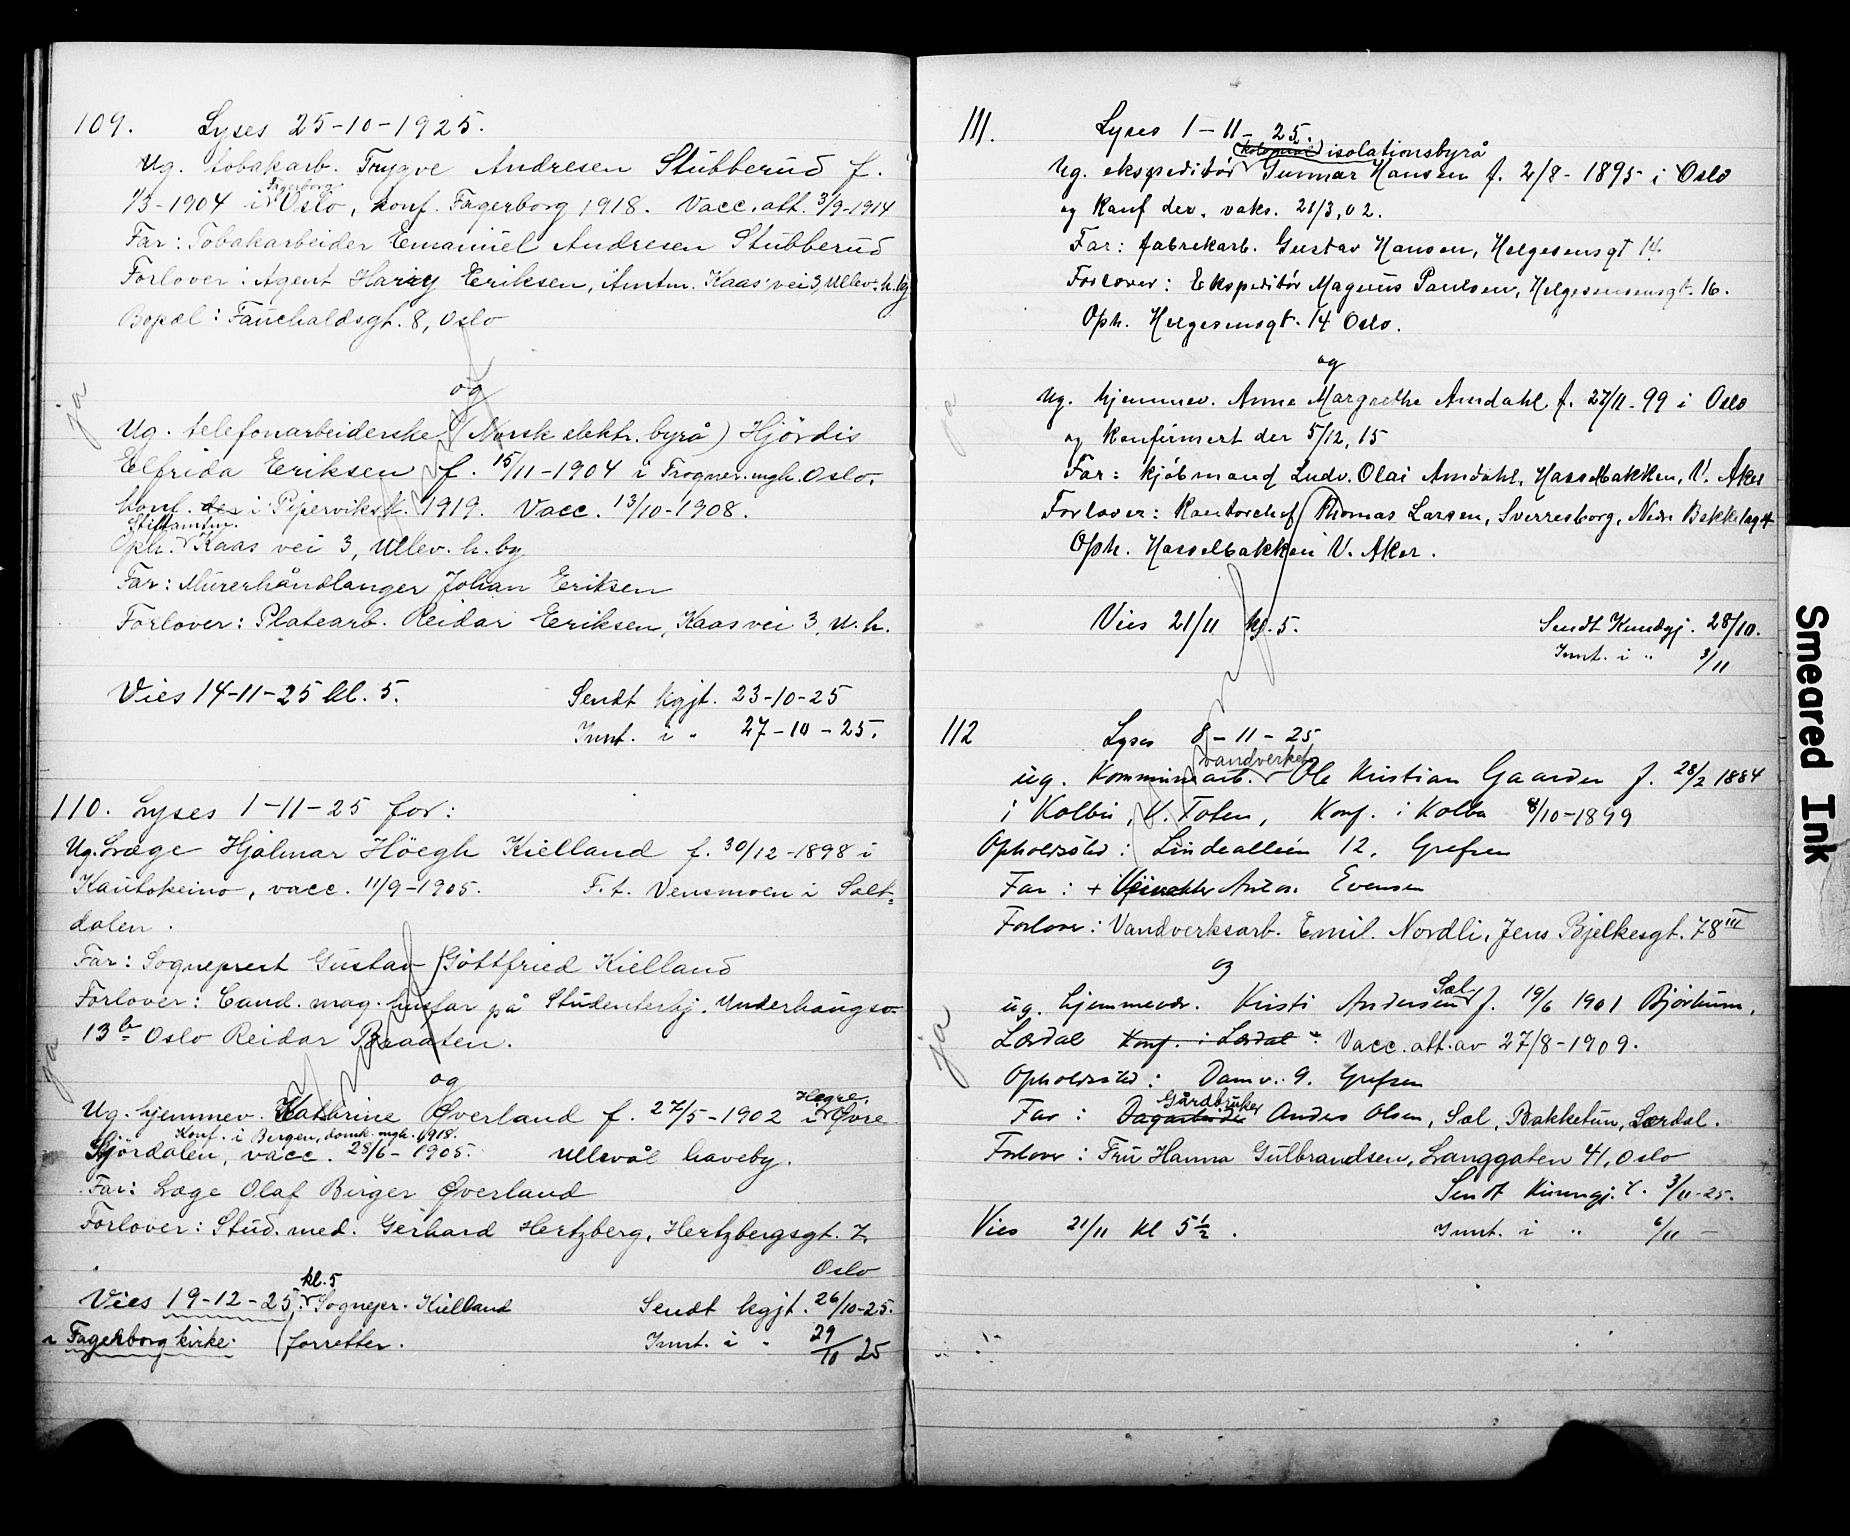 109. Lyses 25-10-1925.
Ug. tobakarb. Trygve Andresen Stubberud f.
Fagerborg
1/3-1904 i Oslo, konf. Fagerborg 1918. Vacc. att. 3/9-1914
Far: Tobakarbeider Emanuel Andresen Stubberud
Forlover: Agent Harry Eriksen, Amtm. Kaas' vei 3, Ullev. h. by
Bopæl: Fauchaldsgt. 8, Oslo
og
ja
Ug. telefonarbeiderske (Norsk elektr. byrå) Hjördis
Elfrida Eriksen f. 15/11-1904 i Frogner mgh. Oslo.
konf. des i Piperviksk. 1919. Vacc. 13/10-1908.
Stiftamtm.
Oph. Kaas vei 3, Ullev. h. by
Far: Murerhåndlanger Johan Eriksen
Forlover: Platearb. Reidar Eriksen, Kaas vei 3, U. h.
Vies 14-11-25 kl. 5. Sendt kgjt. 23-10-25
Innt. i " 27-10-25.
110. Lyses 1-11-25 for:
Ug. Læge Hjalmar Höegh Kielland f. 30/12-1898 i
Kautokeino, vacc. 11/9-1905. F. t. Vensmoen i Salt-
dalen.
Far: Sogneprest Gustav Gottfried Kielland
Forlover: Cand. mag. husfar på Studenterhj. Underhaugsv.
13 b Oslo Reidar Braaten.
og
ja
Hegre,
Ug. hjemmev. Kathrine Øverland f. 27/5-1902 i Øvre
Konf. i Bergen, domk. mgh. 1918.
Stjördalen, vacc. 28/6-1905. Ullevål haveby.
Far: Læge Olaf Birger Øverland
Forlover: Stud. med. Gerhard Hertzberg, Hertzbergsgt. 7,
Oslo
kl. 5
Vies 19-12-25, Sognepr. Kielland Sendt kgjt. 26/10-25.
i Fagerborg kirke. (forretter. Innt. i " 29/10 25
111. Lyses 1-11-25.
(kolonial) isolationsbyrå
Ug. ekspeditör Gunnar Hansen f. 2/8-1895 i Oslo
og Konf der. vaks. 21/3, 02.
Far: fabrekarb. Gustav Hansen, Helgesensgt 14.
Forlover: Ekspeditör Magnus Paulsen, Helgesensensgt. 16.
Oph. Helgesensgt. 14 Oslo.
og
ja
Ug. hjemmev. Anna Margrethe Amdahl f. 27/11-99 i Oslo
og Konfirmert der 5/12, 15
Far: kjöbmand Ludv. Olai Amdahl, Hasselbakken, V. Aker
Forlover: Kontorchef Thomas Larsen, Sverresborg, Nedre Bekkelaget
Oph. Hasselbakken V. Aker.
Vies 21/11 kl. 5. Sendt Kundgj. 28/10.
Innt. i " 3/11
112 Lyses 8-11-25
vandverket
ug. Kommunearb. Ole Kristian Gaarder f. 28/2 1884
i Kolbu, V. Toten, Konf. i Kolbu 8/10-1899
Opholdssted: Lindealleén 12, Grefsen
Far: + Anton Evensen
Forlover: Vandverksarb. Emil Nordli, Jens Bjelkesgt. 78 III
og
Sæl
ug. hjemmevær. Kristi Andersen f. 19/6 1901 Bjørkum,
Lærdal Konf. i Lærdal Vacc. att. av 27/8-1909.
ja
Opholdssted: Damv. 9. Grefsen
Gårdbruker
Far: Dagarbeider Anders Olsen, Sæl, Bakketun, Lærdal.
Forlover: Fru Hanna Gulbrandsen, Langgaten 41, Oslo
Sendt Kunngj. 3/11-25.
Vies 21/11 kl 5 1/2. Innt. i " 6/11 -
Smeared Ink